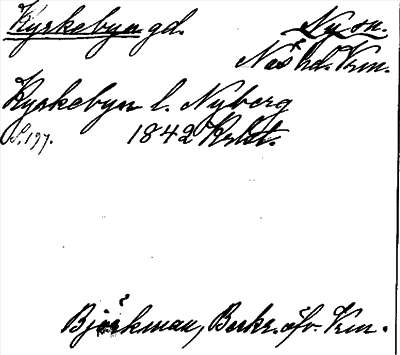 Kyrkebyn gd. Ny sn.
Näs hd. Vrm.
Kyrkebyn l. Nyberg
S. 197. 1842
Björkman, Beskr. öfv. Vrm.